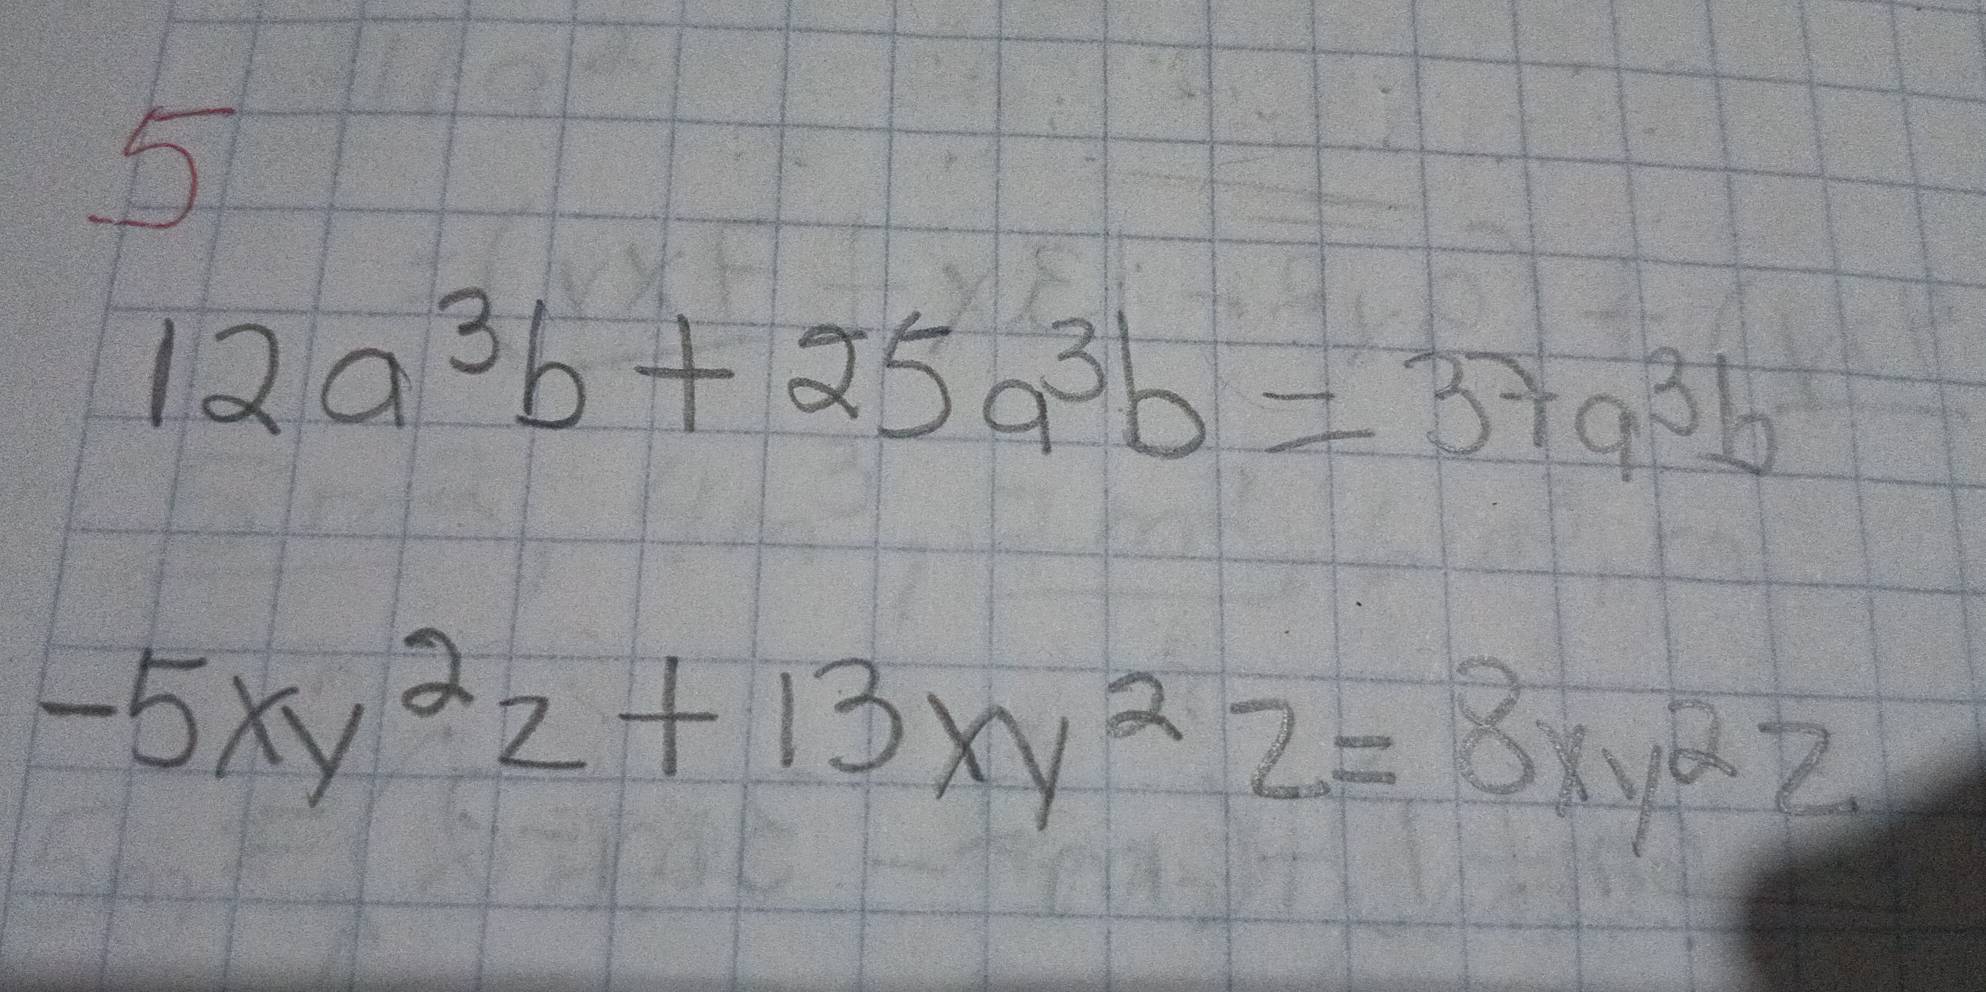 5
12a³b + 25a³b = 37a³b
-5xy²z + 13xy²z = 8xy²z